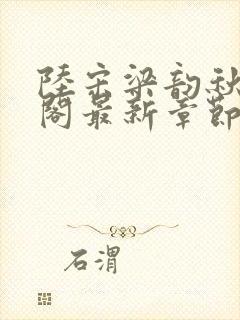 陸宗梁韵秋
閣最新章節
石渭